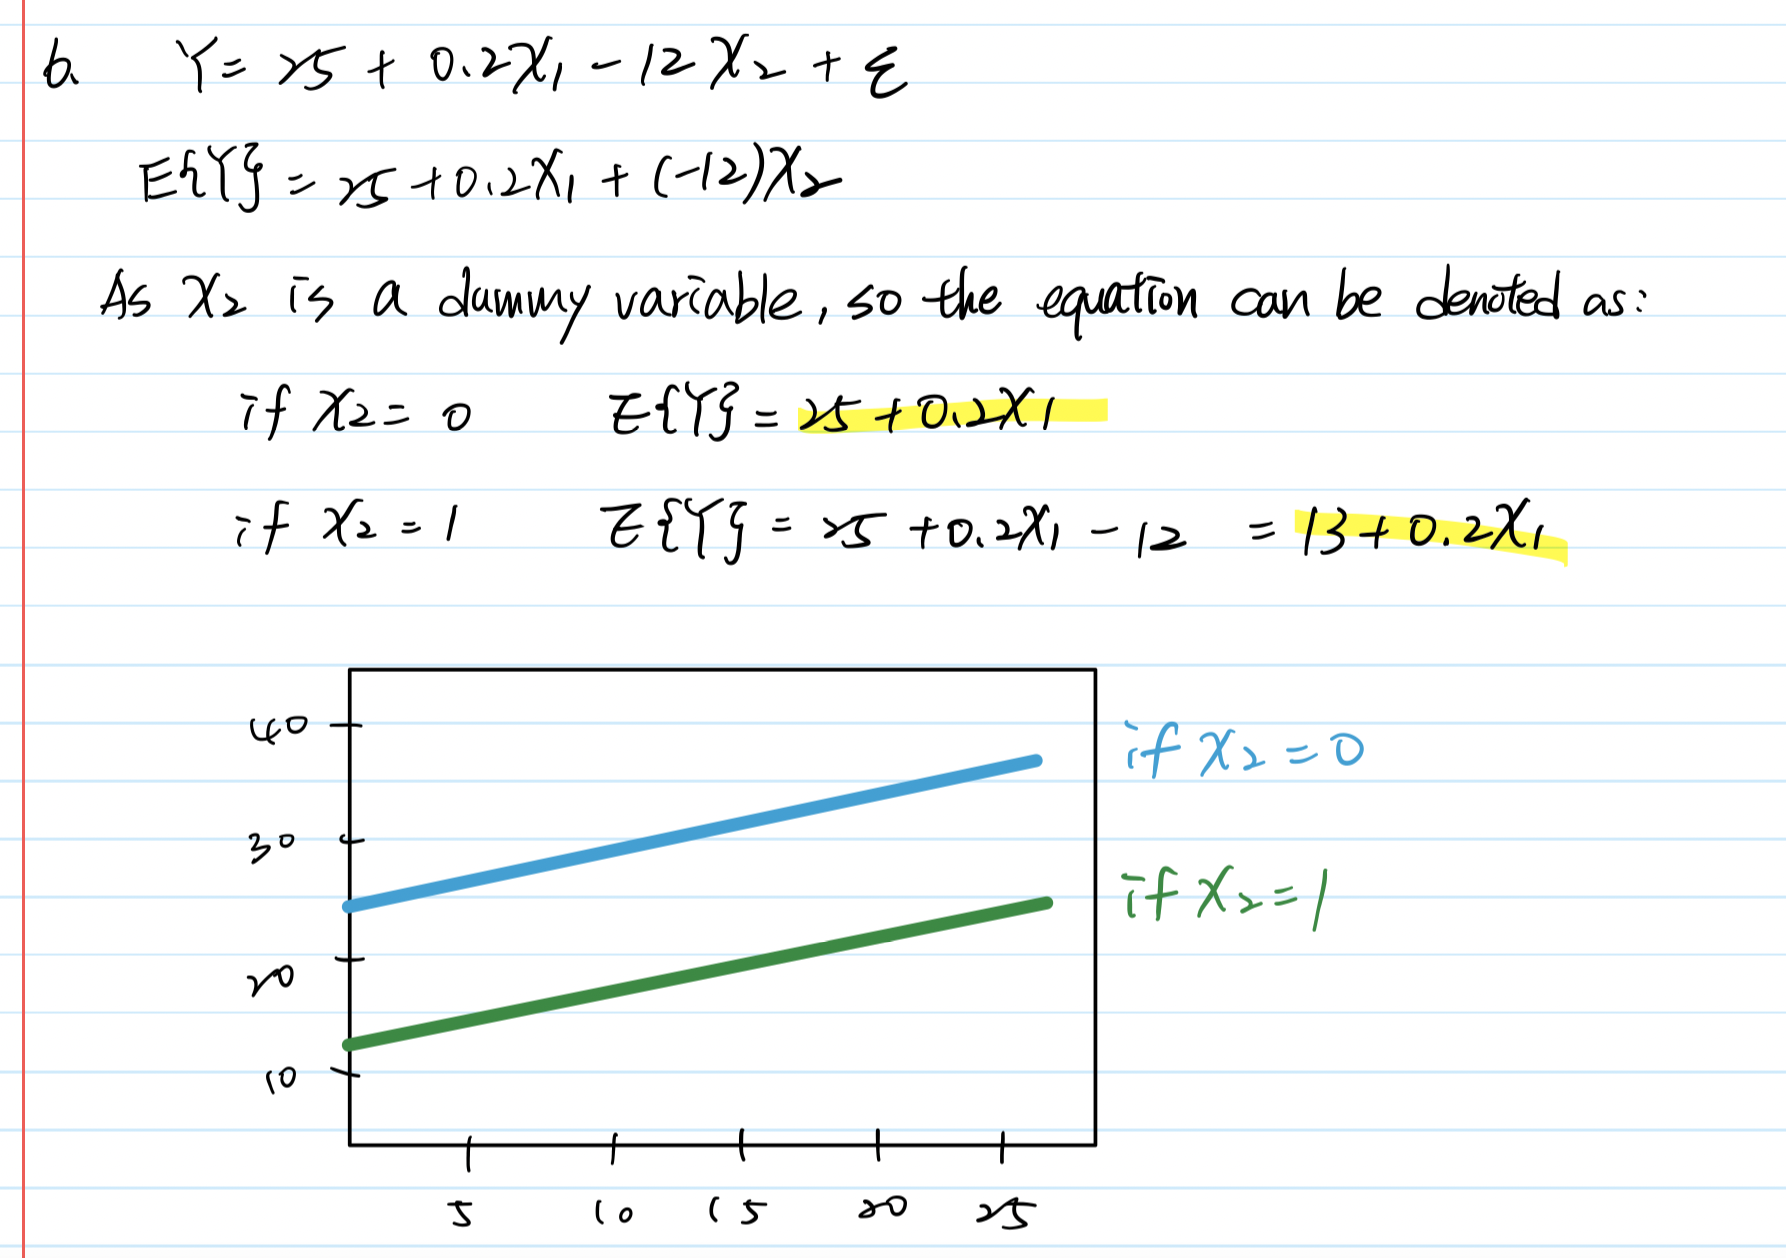 b. Y = 25 + 0.2X₁ - 12X₂ + ε
E{Y} = 25 + 0.2X₁ + (-12)X₂
As X₂ is a dummy variable, so the equation can be denoted as:
if X₂ = 0 E{Y} = 25 + 0.2X₁
if X₂ = 1 E{Y} = 25 + 0.2X₁ - 12 = 13 + 0.2X₁
40
if X₂ = 0
30
if X₂ = 1
20
10
5 10 15 20 25